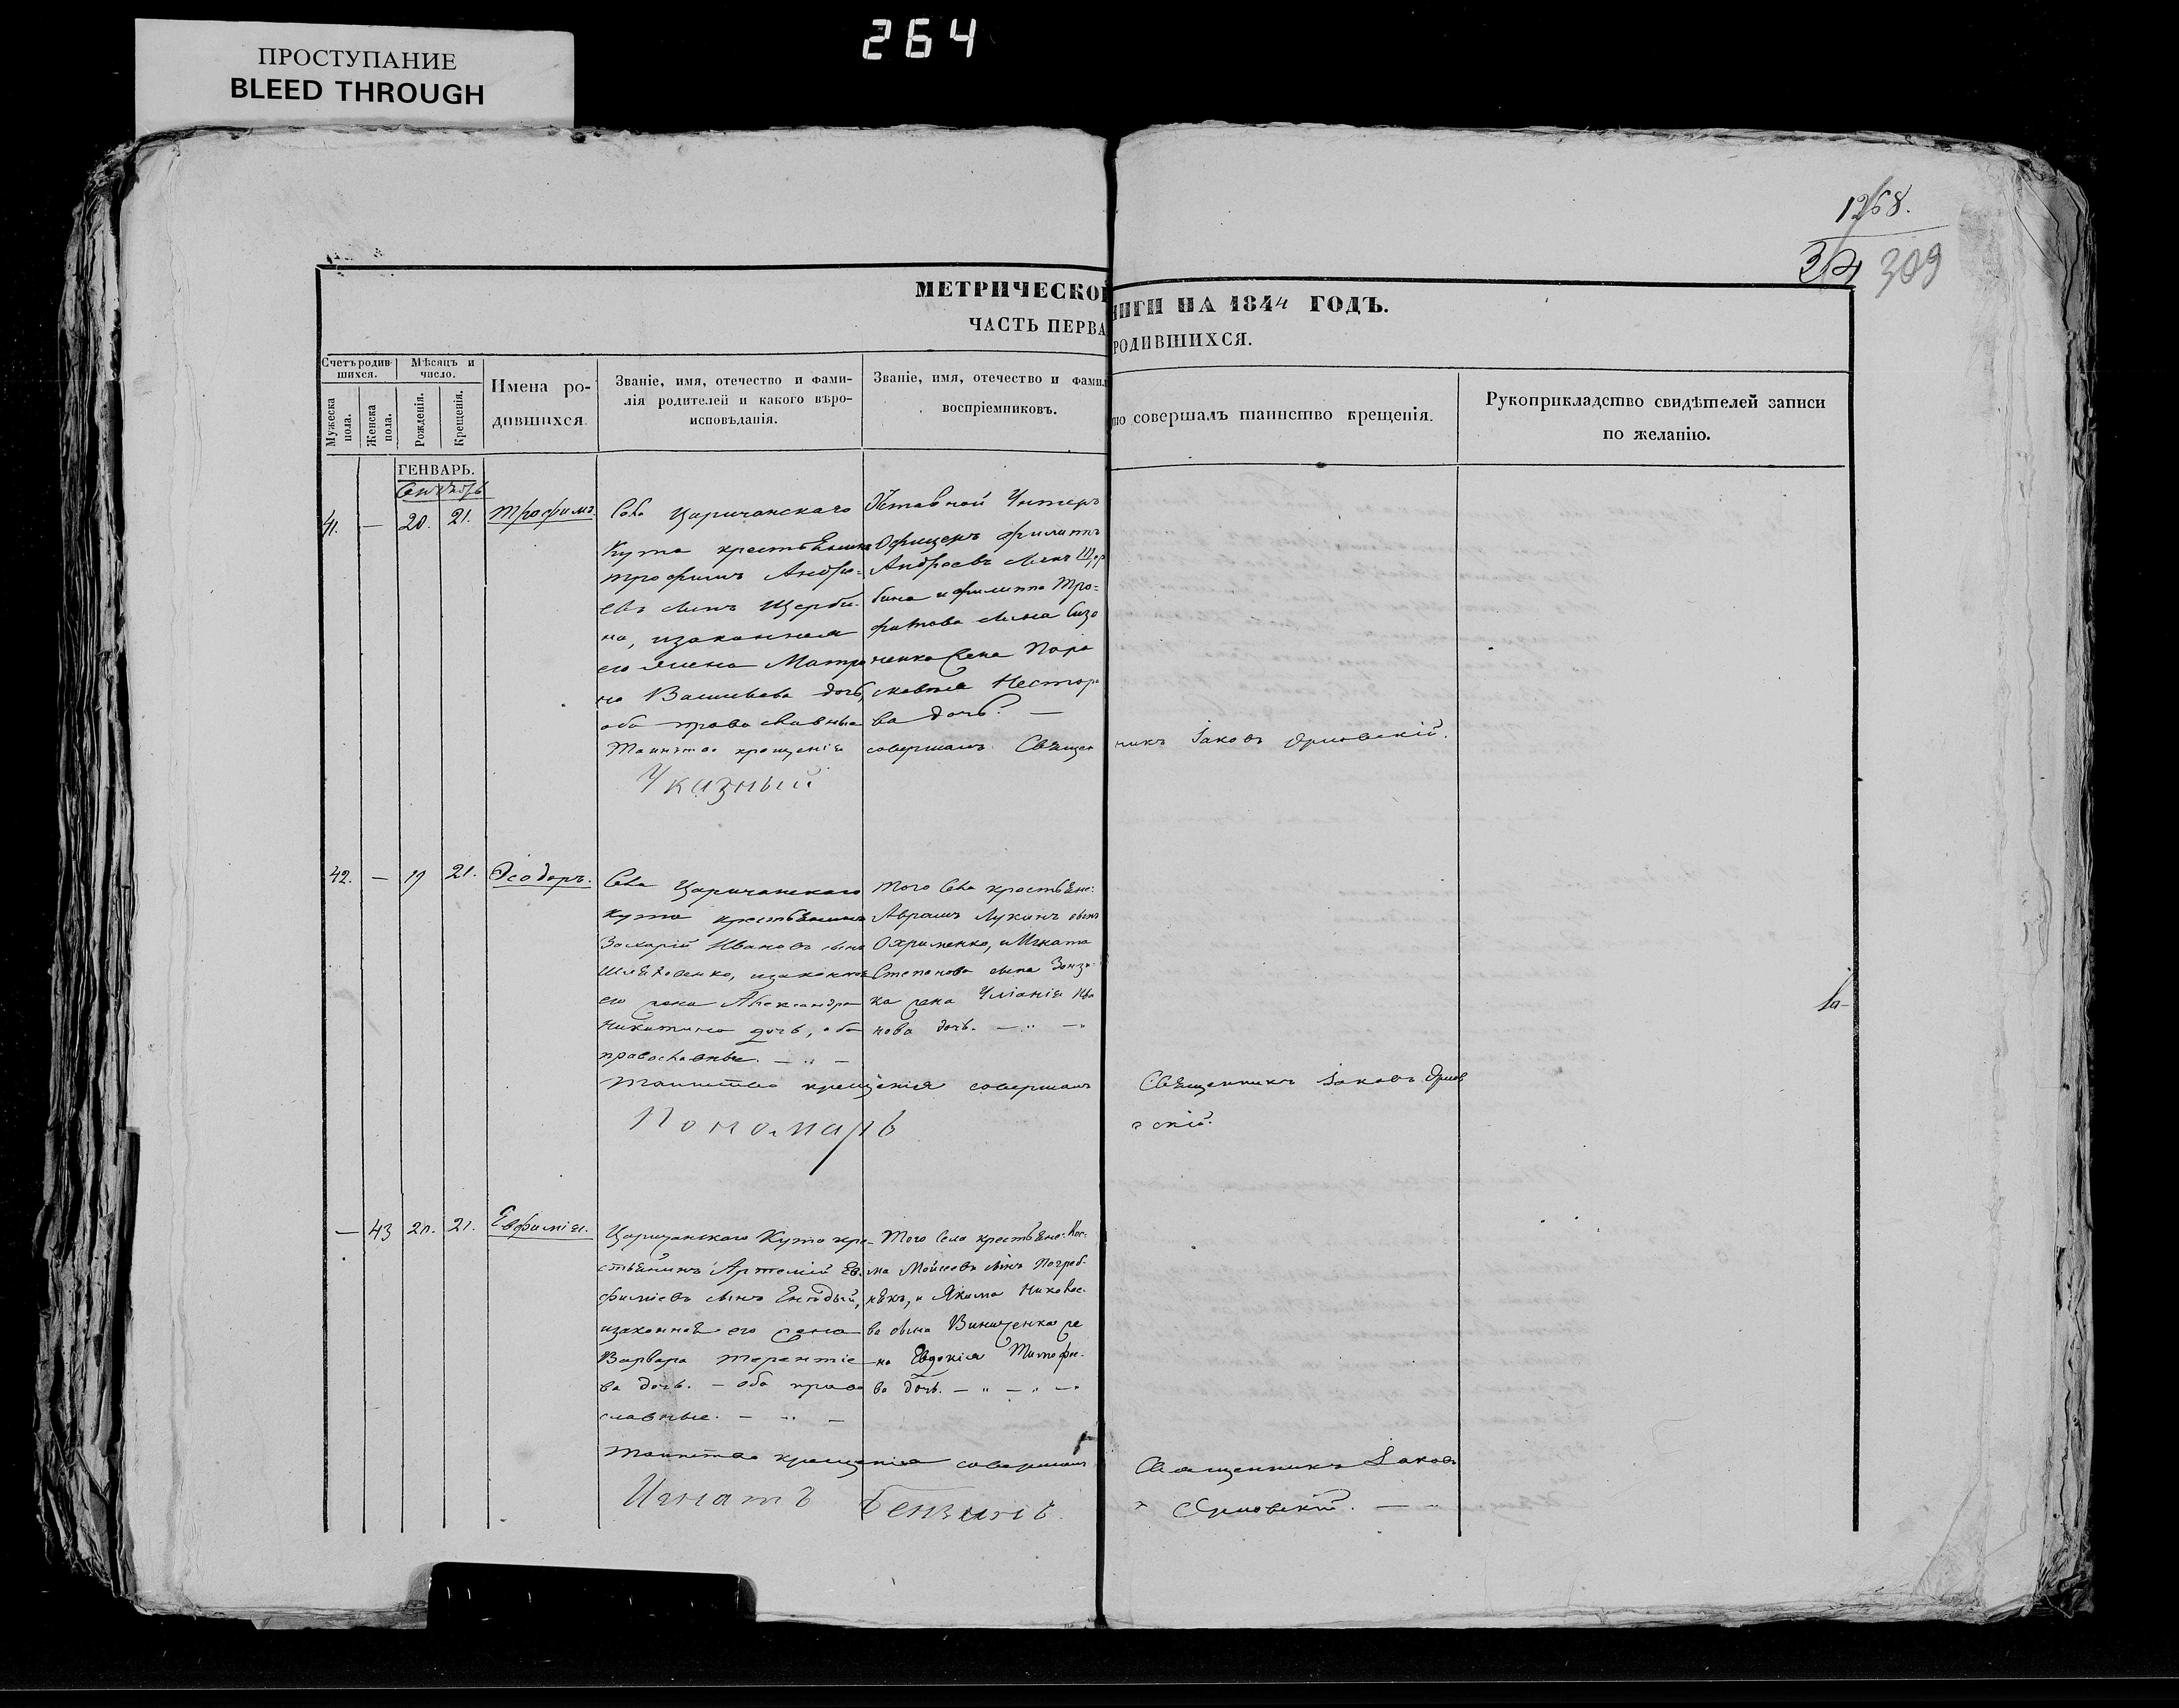 ПРОСТУПАНИЕ
BLEED THROUGH
264
1268.
309
МЕТРИЧЕСКОЙ
НИГИ НА 1844 ГОДЪ.
ЧАСТЬ ПЕРВА
РОДИВШИХСЯ.
Счетъ родив-
шихся.
Мужеска пола.
Женска пола.
Мѣсяцъ и
число.
Рожденія.
Крещенія.
Имена ро-
дившихся
Званіе, имя, отечество и фами-
лія родителей и какого вѣро-
исповѣданія.
Званіе, имя, отечество и фамил
воспріемниковъ.
то совершалъ таинство крещенія.
Рукоприкладство свидѣтелей записи
по желанію.
ГЕНВАРЬ.
Сентябрь
41. — 20. 21. Трофимъ.
Села Царичанскаго
Кута крестьянинъ
Трофимъ Андре-
евъ сынъ Щерби-
на, изаконная
его жена Матро
на Васильева дочь,
оба православные
Отставной Унтеръ
Офицеръ Филиппъ
Андреевъ сынъ Щер
бина и Филиппа Тро-
фимова сына Сизо
ненка жена Пара
скевия Несторо
ва дочь. —
Таинство крещенія совершалъ Священникъ Іаковъ Орловскій.
Указный
42. — 19 21. Ѳеодоръ.
Села Царичанскаго
Кута крестьянинъ
Захарій Ивановъ сынъ
его жена Александра
Никитина дочь, оба
православные. — " —
Того Села крестьяне:
Аврамъ Лукинъ сынъ
Охрименко, и Игната
Степанова сына
ка жена Уліанія Ива
нова дочь. — " — "
Таинство крещенія совершалъ Священникъ Іаковъ Орлов
скій.
Пономарь
— 43 20. 21. Евфимія.
Царичанскаго Кута кре-
стьянинъ Артемій Ев-
фиміевъ сынъ
изаконная его жена
Варвара Терентіе-
ва дочь. — оба право
славные. — " —
Того Села крестьяне: Кос-
ма Моисеевъ сынъ Погреб-
някъ, и Якима Николае-
ва сына Винниченка же
на Евдокія Тимофее-
ва дочь. — " — " — "
Таинство крещенія совершалъ Священникъ Іаковъ
Орловскій. —
Игнатъ